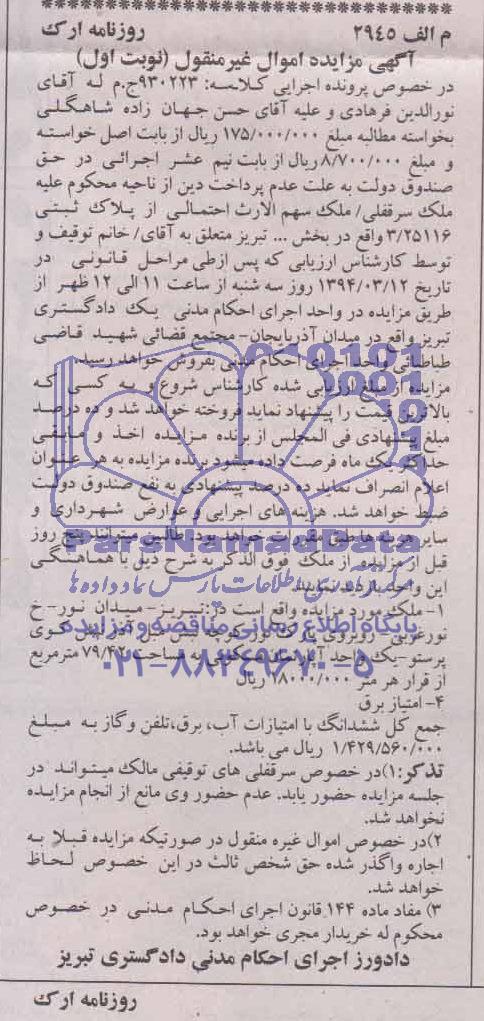 م الف ۲۹۴۵ روزنامه ارک
آگهی مزایده اموال غیرمنقول (نوبت اول)
در خصوص پرونده اجرایی کلاسه: ۹۳۰۲۲۳ج.م له آقای
نورالدین فرهادی و علیه آقای حسن جهان زاده شاهگلی
بخواسته مطالبه مبلغ ۱۷۵/۰۰۰/۰۰۰ ریال از بابت اصل خواسته
و مبلغ ۸/۷۰۰/۰۰۰ ریال از بابت نیم عشر اجرائی در حق
صندوق دولت به علت عدم پرداخت دین از ناحیه محکوم علیه
ملک سرقفلی/ ملک سهم الارث احتمالی از پلاک ثبتی
۳/۲۵۱۱۶ واقع در بخش ... تبریز متعلق به آقای/ خانم توقیف و
توسط کارشناس ارزیابی که پس ازطی مراحل قانونی در
تاریخ ۱۳۹۴/۰۳/۱۲ روز سه شنبه از ساعت ۱۱ الی ۱۲ ظهر از
طریق مزایده در واحد اجرای احکام مدنی یک دادگستری
تبریز واقع در میدان آذربایجان- مجتمع قضائی شهید قاضی
طباطبائی واحد اجرای احکام مدنی بفروش خواهد رسید.
مزایده از مبلغ ارزیابی شده کارشناس شروع و به کسی که
بالاترین قیمت را پیشنهاد نماید فروخته خواهد شد و ده درصد
مبلغ پیشنهادی فی المجلس از برنده مزایده اخذ و مابقی
حداکثر یک ماه فرصت داده میشود برنده مزایده به هر عنوان
اعلام انصراف نماید ده درصد پیشنهادی به نفع صندوق دولت
ضبط خواهد شد. هزینه های اجرایی و عوارض شهرداری و
سایر هزینه ها طبق مقررات خواهد بود. طالبین میتوانند پنج روز
قبل از مزایده از ملک فوق الذکر به شرح ذیل با هماهنگی
این واحد بازدید نمایند
۱- ملک مورد مزایده واقع است در: تبریز- میدان نور- خ
نورغربی- روبروی پارک نور کوچه
پرستو-یک واحد آپارتمان مسکونی به مساحت ۷۹/۴۲ مترمربع
از قرار هر متر ۱۸۰۰۰/۰۰۰ ریال
۴- امتیاز برق
جمع کل ششدانگ با امتیازات آب، برق،تلفن وگاز به مبلغ
۱/۴۲۹/۵۶۰/۰۰۰ ریال می باشد.
تذکر:۱)در خصوص سرقفلی های توقیفی مالک میتواند در
جلسه مزایده حضور یابد. عدم حضور وی مانع از انجام مزایده
نخواهد شد.
۲)در خصوص اموال غیره منقول در صورتیکه مزایده قبلا به
اجاره واگذر شده حق شخص ثالث در این خصوص لحاظ
خواهد شد.
۳) مفاد ماده ۱۴۴ قانون اجرای احکام مدنی در خصوص
محکوم له خریدار مجری خواهد بود.
دادورز اجرای احکام مدنی دادگستری تبریز
روزنامه ارک
ParsNamadData
پایگاه اطلاع رسانی مناقصه و مزایده
۰۲۱-۸۸۳۴۹۶۷۰-۵